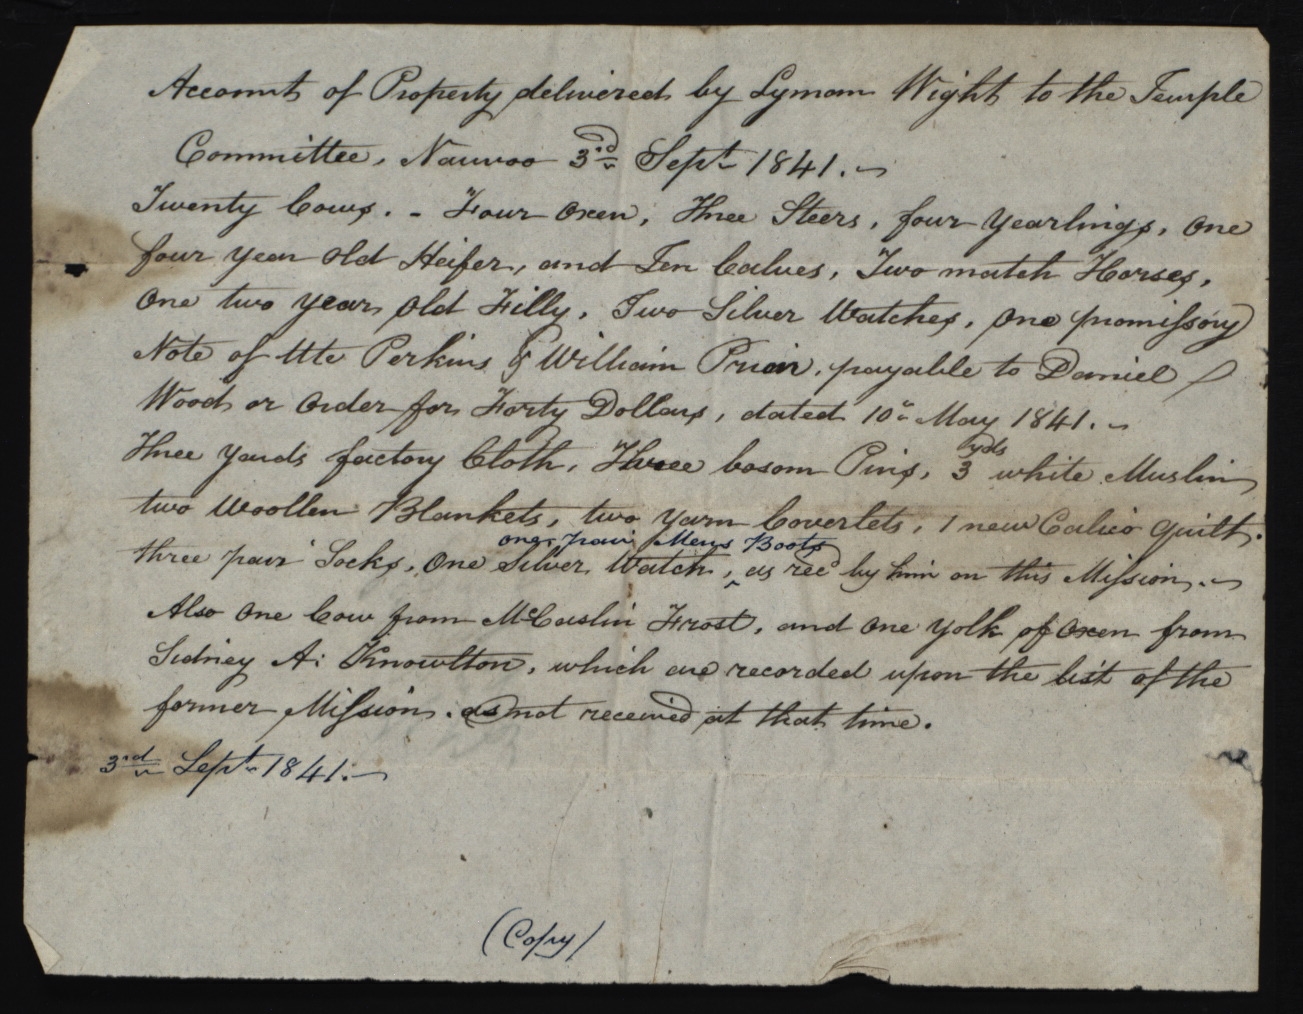 Account of Property delivered by Lyman Wight to the Temple
Committee, Nauvoo 3rd Sept 1841.
Twenty Cows. - Four Oxen, Three Steers, four Yearlings, one
four year old Heifer, and Ten Calves, Two match Horses,
One two year old Filly, Two Silver Watches, one promissory
Note of Ute Perkins & William Prior, payable to Daniel
Wood or order for Forty Dollars, dated 10th May 1841.
Three Yards factory Cloth, Three bosom Pins, 3 yds white Muslin
two Woollen Blankets, two Yarn Coverlets, 1 new Calico quilt.
one pair Mens Boots
three pair Socks, One Silver Watch, as recd by him on this Mission.
Also One Cow from McCaslin Frost, and one yolk of Oxen from
Sidney A: Knowlton, which are recorded upon the list of the
former Mission. as not received at that time.
3rd Sept 1841.
(Copy)